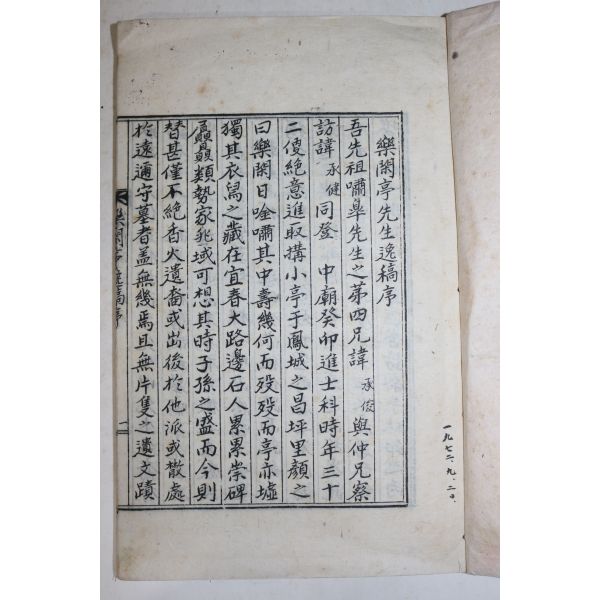 樂閑亭先生逸稿序
吾先祖嘯皐先生之第四兄諱承俊與仲兄察
訪諱承健同登 中廟癸卯進士科時年三十
二傻絶意進取搆小亭于鳳城之昌坪里顔之
曰樂閑日唫嘯其中壽幾何而歿歿而亭亦墟
獨其衣舃之藏在宜春大路邊石人累累崇碑
屭贔類勢家兆域可想其時子孫之盛而今則
替甚僅不絶香火遺裔或出後於他派或散處
於遠邇守墓者盖無幾焉且無片隻之遺文蹟
樂閑亭逸稿序
一
一九七二、九、二日、